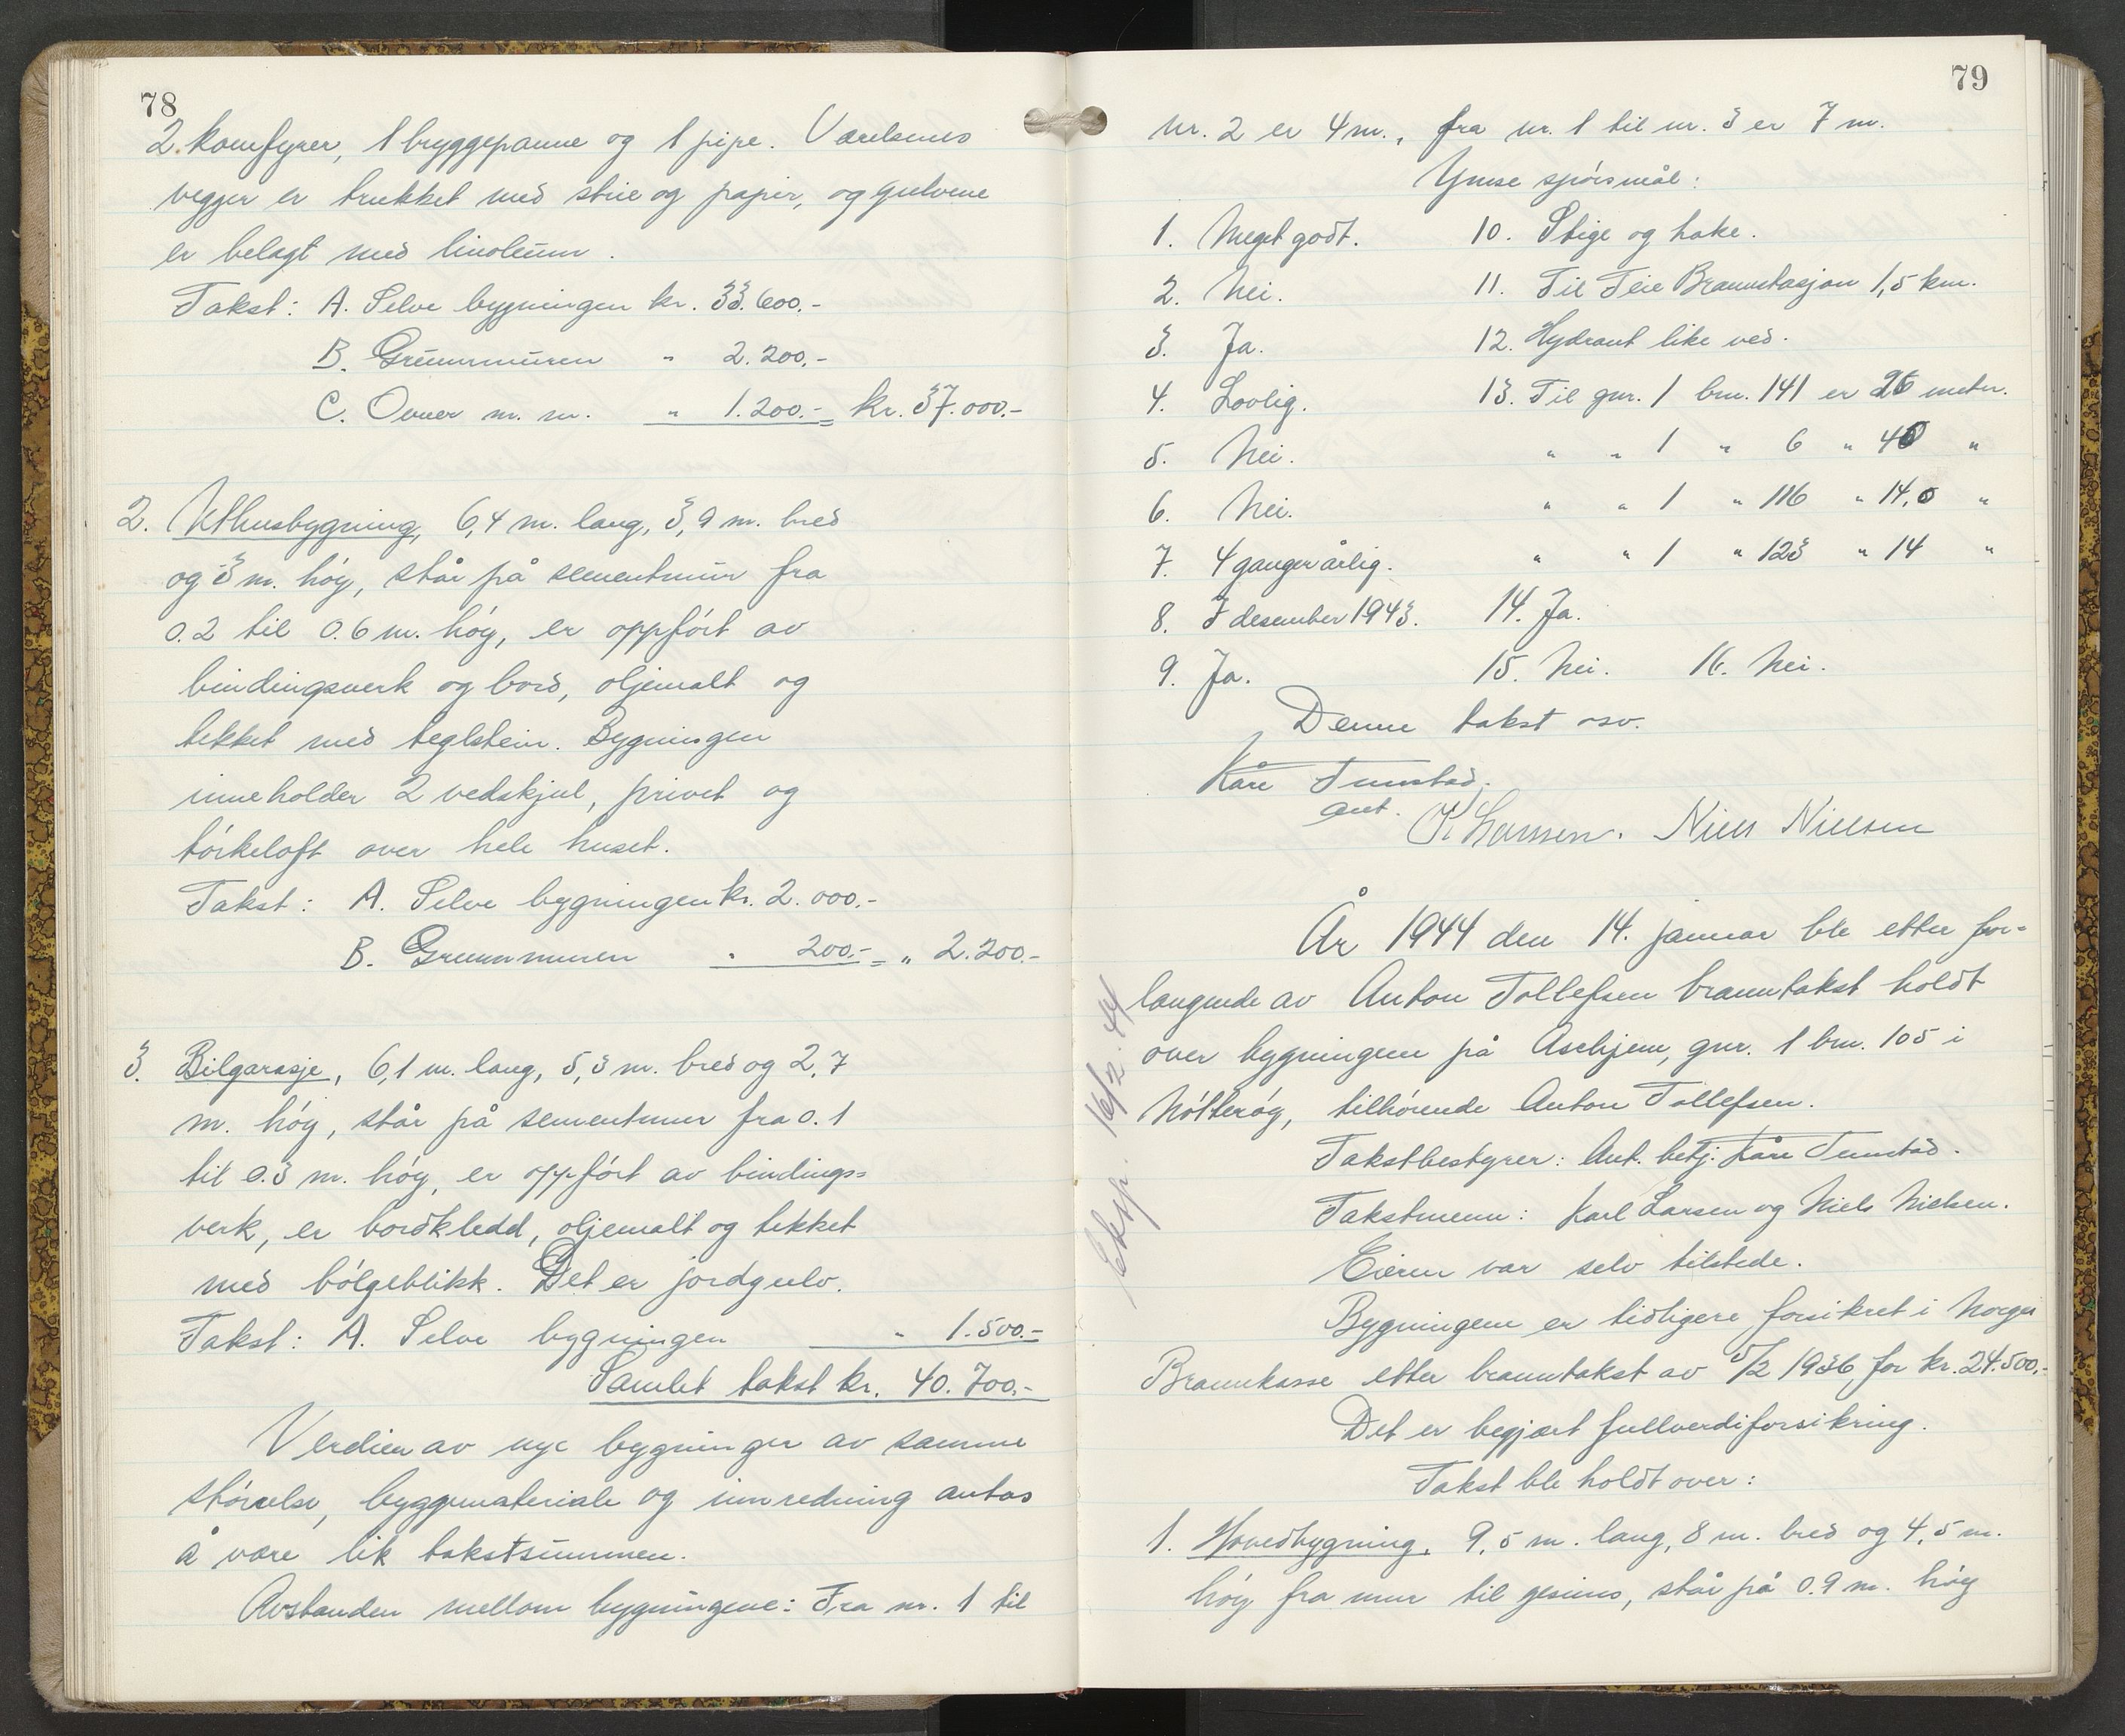 78
2 komfyrer, 1 bryggepanne og 1 pipe. Værelsenes
vegger er trukket med strie og papir, og gulvene
er belagt med linoleum.
Takst: A. Selve bygningen kr. 33.600.-
B. Grunnmuren " 2.200.-
C. Ovner m. m. " 1.200.- = kr. 37.000.-
2. Uthusbygning, 6,4 m. lang, 3,9 m. bred
og 3 m. hóg, står på sementmur fra
0.2 til 0.6 m. hóg, er oppfórt av
bindingsverk og bord, oljemalt og
tekket med teglstein. Bygningen
inneholder 2 vedskjul, privet og
tórkeloft over hele huset.
Takst: A. Selve bygningen kr. 2.000.-
B. Grunnmuren " 200.- = " 2.200.-
3. Bilgarasje, 6,1 m. lang, 5,3 m. bred og 2,7
m. hóg, står på sementmur fra 0.1
til 0.3 m. hóg, er oppfórt av bindings=
verk, er bordkledd, oljemalt og tekket
med bólgeblikk. Det er jordgulv.
Takst: A. Selve bygningen " 1.500.-
Samlet takst kr. 40.700.-
Verdien av nye bygninger av samme
stórrelse, byggemateriale og innredning antas
å være lik takstsummen.
Avstanden mellom bygningene: Fra nr. 1 til
79
nr. 2 er 4 m., fra nr. 1 til nr. 3 er 7 m.
Ymse spórsmål:
1. Meget godt. 10. Stige og hake.
2. Nei. 11. Til Teie Brannstasjon 1,5 km.
3. Ja. 12. Hydrant like ved.
4. Lovlig. 13. Til gnr. 1 bnr. 141 er 26 meter.
5. Nei. " " 1 " 6 " 40 "
6. Nei. " " 1 " 116 " 14,0 "
7. 4 ganger årlig. " " 1 " 123 " 14 "
8. I desember 1943. 14. Ja.
9. Ja. 15. Nei. 16. Nei.
Denne takst osv.
Kåre Tunstad.
aut. K Larssen. Niels Nielsen
År 1944 den 14. januar ble etter for=
langende av Anton Tollefsen branntakst holdt
over bygningene på Aschjem, gnr. 1 bnr. 105 i
Nótteróy, tilhórende Anton Tollefsen.
Takstbestyrer: Aut. betj. Kåre Tunstad.
Takstmenn: Karl Larsen og Niels Nielsen.
Eieren var selv tilstede.
Bygningene er tidligere forsikret i Norges
Brannkasse etter branntakst av 5/2 1936 for kr. 24.500.-
Det er begjært fullverdiforsikring.
Takst ble holdt over:
1. Hovedbygning, 9,5 m. lang, 8 m. bred og 4,5 m.
hóg fra mur til gesims, står på 0.9 m. hóg
Eksp. 16/2. 44